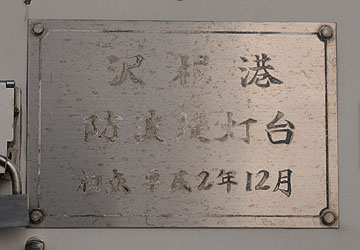 沢根港
防波堤灯台
初点 平成2年12月